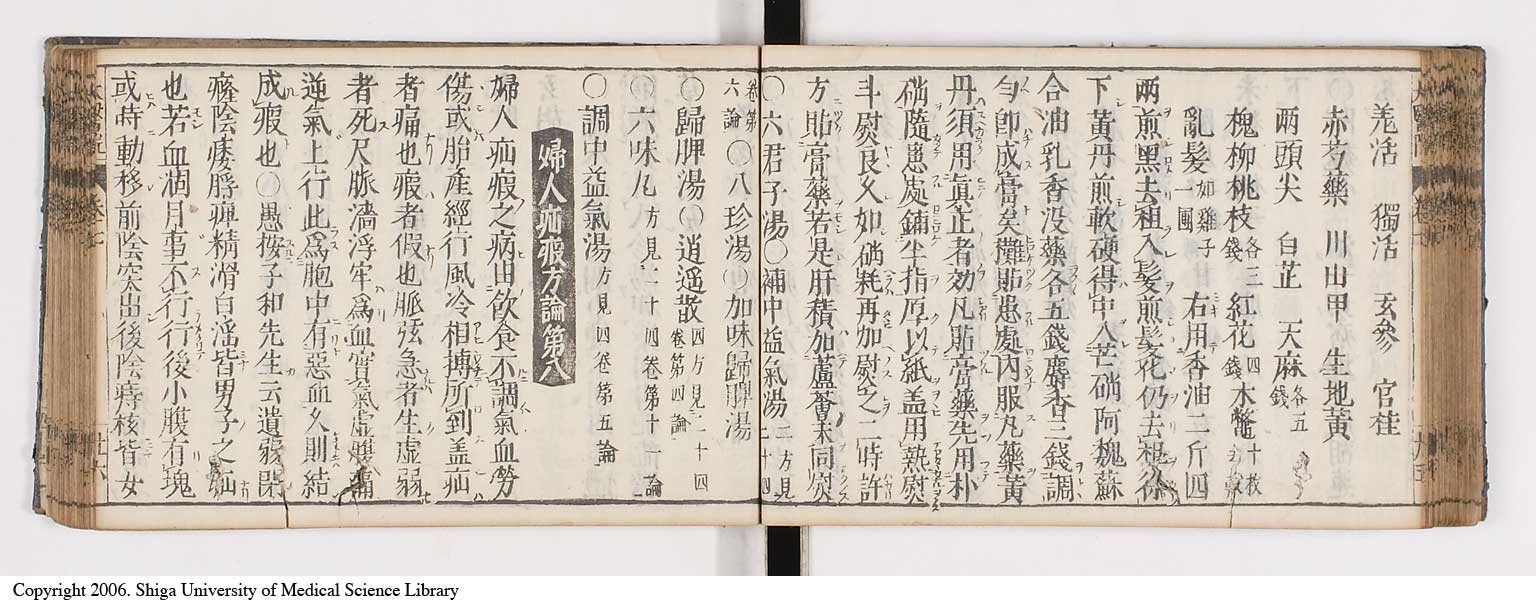 羗活 獨活 玄參 官桂
赤芍藥 川山甲 生地黄
兩頭尖 白芷 天麻各五錢
槐柳桃枝各三錢 紅花四錢 木鼈十枚
亂髮如雞子一團 右用香油二斤四
兩煎黑去柤入髮煎髮化仍去柤徐
下黄丹煎軟硬得中入芒硝阿魏蘇
合油乳香没藥各五錢麝香三錢調
匀卽成膏矣攤貼患處内服丸藥黄
丹須用眞正者効凡貼膏藥先用朴
硝隨患處鋪半指厚以紙盖用熱熨
斗熨良久如硝耗再加熨之二時許
方貼膏藥若是肝積加蘆薈末同熨
〇六君子湯〇補中益氣湯二方見二十四
卷第六論〇八珍湯〇加味歸脾湯
〇歸脾湯〇逍遥散四方見二十四卷第四論
〇六味丸方見二十四卷第十一論
〇調中益氣湯方見四卷第五論
婦人疝瘕方論第八
婦人疝瘕之病由飲食不調氣血勞
傷或胎産經行風冷相搏所到盖疝
者痛也瘕者假也脈弦急者生虚弱
者死尺脈濇浮牢爲血實氣虚腹痛
逆氣上行此爲胞中有惡血久則結
成瘕也〇愚按子和先生云遺溺閉
癃陰痿脬痺精滑白淫皆男子之疝
也若血涸月事不行行後小腹有塊
或時動移前陰突出後陰痔核皆女
Copyright 2006. Shiga University of Medical Science Library